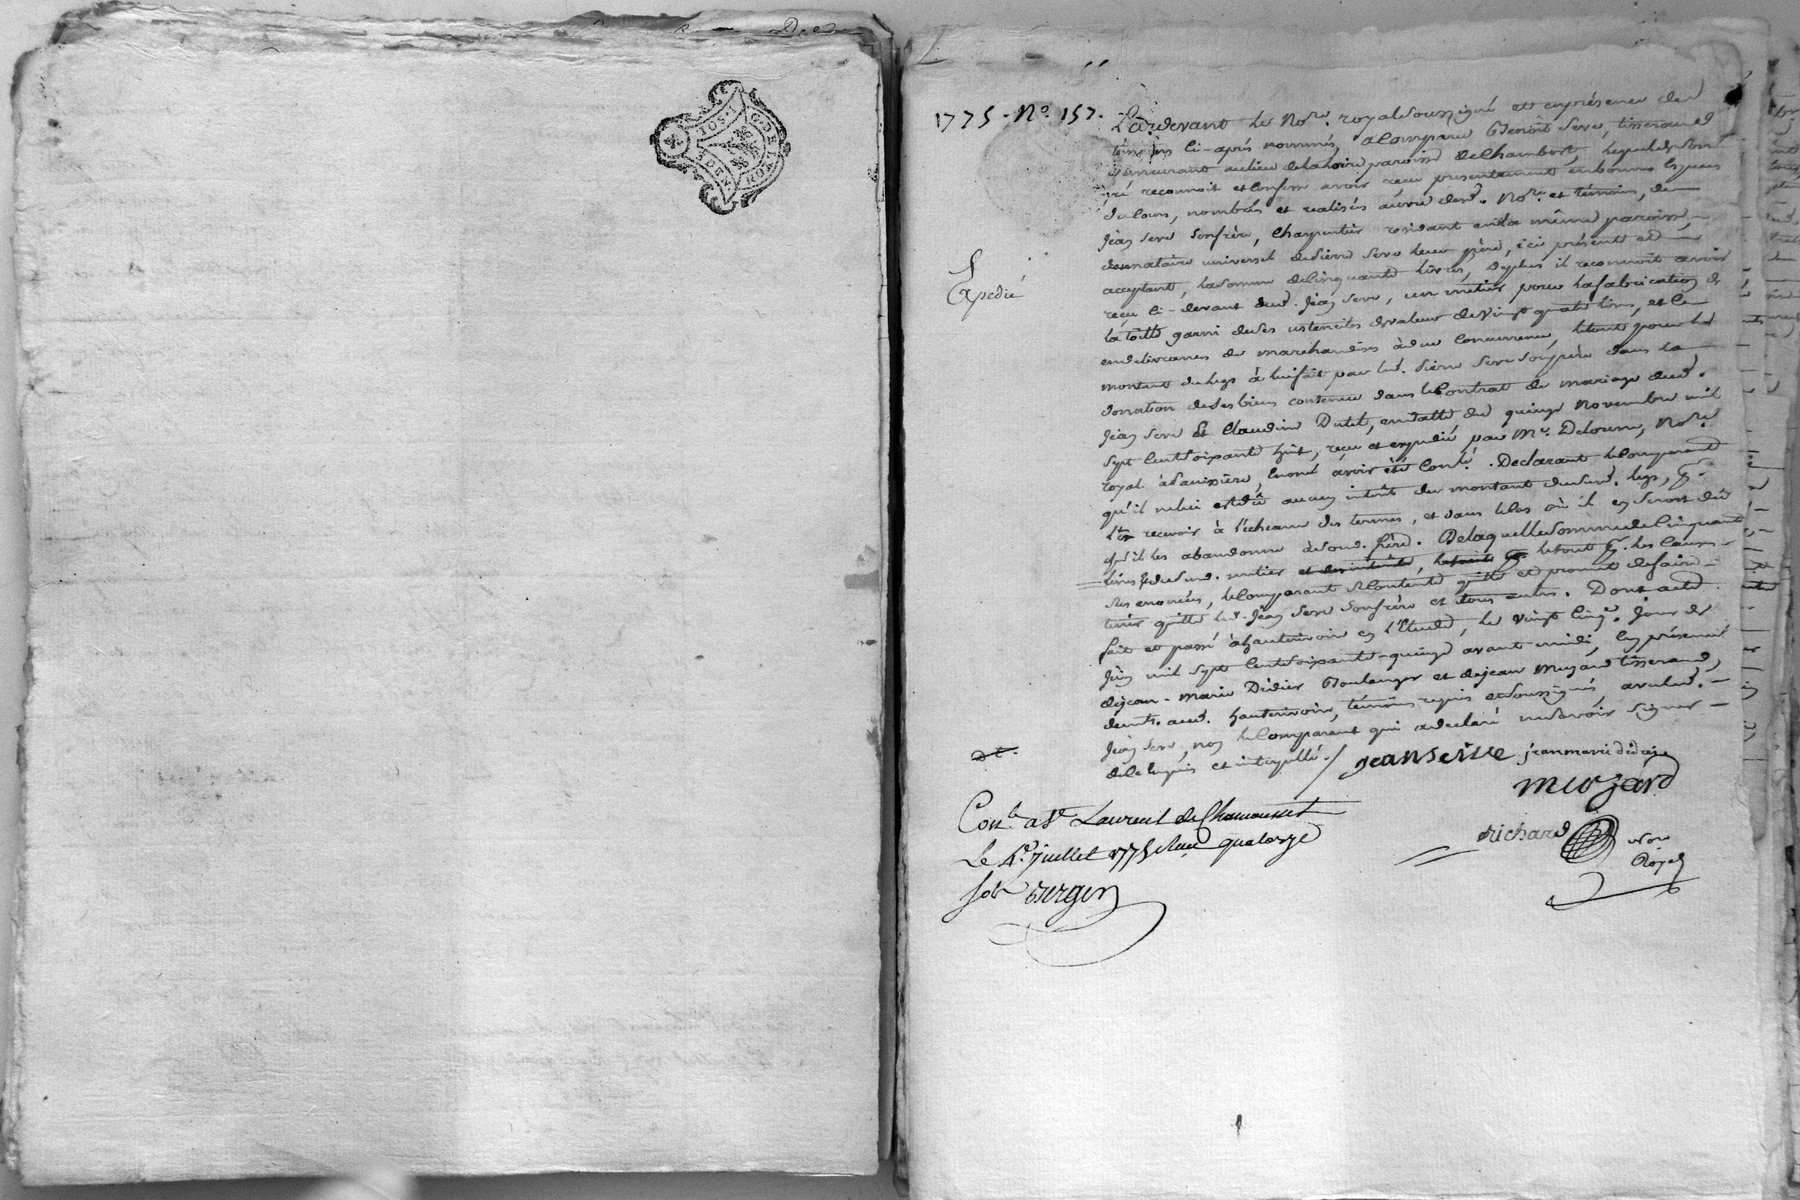 G. DE LYON
10S. 1
DEN
1775. N.o 157.
Pardevant le No.re royal soussigné et en présence des
témoins ci-après nommés, a comparu Benoît Serve, tisserand
demeurant au lieu de la noire paroisse de Chambost, lequel de son
gré reconnoit et confesse avoir recu presentement en bonnes especes
du cours, nombrés et realisés au vu dud. No.re et témoins, de
Jean Serve son frère, charpentier residant en la même paroisse,
donnataire universel de pierre Serve leur père, ici présent et
acceptant, la somme de cinquante livres, deplus il reconnoit avoir
recu ci-devant dud. Jean Serve, un métier pour la fabrication de
la toille garni de ses ustenciles de valeur de vingt quatre livres, et ce
en delivrance de marchandises à due concurrence, le tout pour le
montant du legs à lui fait par led. pierre Serve son père dans la
donation de ses biens contenue dans le Contrat de mariage dud.
Jean Serve et Claudine Dutel, en datte du quinze Novembre mil
sept cent soixante huit, reçu et expedié par M.e Delorme, No.re
royal à, Enoncé avoir été Con.lé. Declarant le comparant
qu'il ne lui est dû aucun intérêt du montant dud. legs, p.
l'en recevoir à l'écheance des termes, et dans le cas où il en seroit dû
qu'il les abandonne à sond. frère. De laquelle somme de cinquante
livres & dud. métier et des intérêts, le tout p. le tout p. les causes
sus enoncées, le comparant se contente quitte et promet de faire
tenir quitte led. Jean Serve son frère et tous autres. Dont acte
fait et passé à hauterivoire en l'Etude, le vingt cinq.e jour de
Juin mil sept cent soixante-quinze avant midi, en présence
de jean-marie Didier Boulanger et de jean Muzard tisserand,
demts. aud. hauterivoire, témoins requis et soussignés, avec led.
Jean Serve, non le comparant qui a declaré ne savoir signer
de ce enquis et interpellé. /
Expedié
jean serve jean marie didier
muzard
richard
Nore
Royal
Con.lé a St Laurent de Chamousset
Le 4e juillet 1775 Reçu quatorze
sols